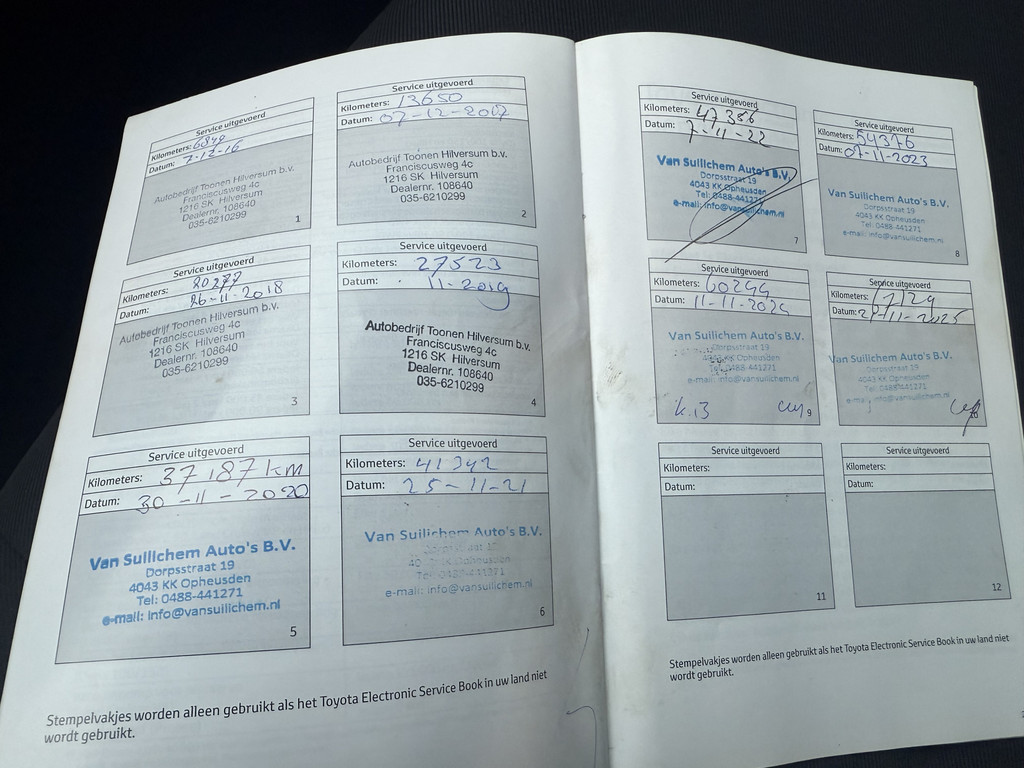 Service uitgevoerd
Kilometers: 6840
Datum: 7-12-16
Autobedrijf Toonen Hilversum b.v.
Franciscusweg 4c
1216 SK Hilversum
Dealernr. 108640
035-6210299
1
Service uitgevoerd
Kilometers: 13650
Datum: 07-12-2017
Autobedrijf Toonen Hilversum b.v.
Franciscusweg 4c
1216 SK Hilversum
Dealernr. 108640
035-6210299
2
Service uitgevoerd
Kilometers: 20277
Datum: 26-11-2018
Autobedrijf Toonen Hilversum b.v.
Franciscusweg 4c
1216 SK Hilversum
Dealernr. 108640
035-6210299
3
Service uitgevoerd
Kilometers: 27523
Datum: 11-2019
Autobedrijf Toonen Hilversum b.v.
Franciscusweg 4c
1216 SK Hilversum
Dealernr. 108640
035-6210299
4
Service uitgevoerd
Kilometers: 37187 km
Datum: 30-11-2020
Van Suilichem Auto's B.V.
Dorpsstraat 19
4043 KK Opheusden
Tel: 0488-441271
e-mail: info@vansuilichem.nl
5
Service uitgevoerd
Kilometers: 41342
Datum: 25-11-21
Van Suilichem Auto's B.V.
e-mail: info@vansuilichem.nl
6
Stempelvakjes worden alleen gebruikt als het Toyota Electronic Service Book in uw land niet
wordt gebruikt.
Service uitgevoerd
Kilometers: 47386
Datum: 7-11-22
Van Suilichem Auto's B.V.
Dorpsstraat 19
4043 KK Opheusden
Tel: 0488-441271
e-mail: info@vansuilichem.nl
7
Service uitgevoerd
Kilometers: 54376
Datum: 07-11-2023
Van Suilichem Auto's B.V.
Dorpsstraat 19
4043 KK Opheusden
Tel: 0488-441271
e-mail: info@vansuilichem.nl
8
Service uitgevoerd
Kilometers: 60244
Datum: 11-11-2024
Van Suilichem Auto's B.V.
Dorpsstraat 19
4043 KK Opheusden
Tel: 0488-441271
e-mail: info@vansuilichem.nl
9
Service uitgevoerd
Kilometers:
Datum: 11-2025
Van Suilichem Auto's B.V.
Dorpsstraat 19
4043 KK Opheusden
Tel: 0488-441271
e-mail: info@vansuilichem.nl
10
Service uitgevoerd
Kilometers:
Datum:
11
Service uitgevoerd
Kilometers:
Datum:
12
Stempelvakjes worden alleen gebruikt als het Toyota Electronic Service Book in uw land niet
wordt gebruikt.